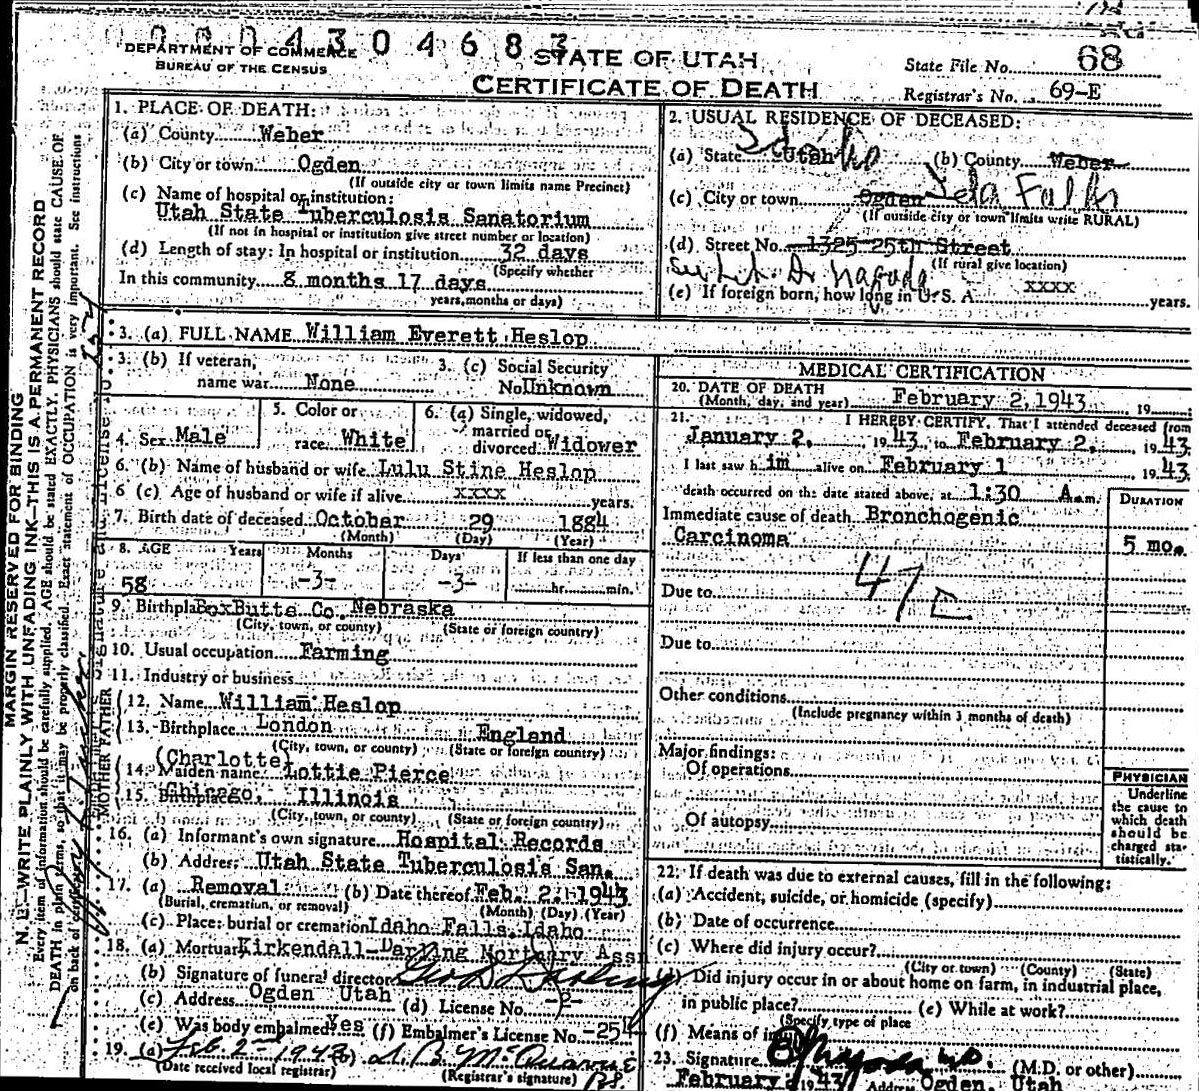 0 0 0 0 4 3 0 4 6 8 3
DEPARTMENT OF COMMERCE
BUREAU OF THE CENSUS
STATE OF UTAH
CERTIFICATE OF DEATH
State File No. 68
Registrar's No. 69-E
MARGIN RESERVED FOR BINDING
N. B.—WRITE PLAINLY WITH UNFADING INK—THIS IS A PERMANENT RECORD
Every item of information should be carefully supplied. AGE should be stated EXACTLY. PHYSICIANS should state CAUSE OF
DEATH in plain terms, so that it may be properly classified. Exact statement of OCCUPATION is very important. See instructions
on back of certificate.
1. PLACE OF DEATH:
(a) County Weber
(b) City or town Ogden
(If outside city or town limits name Precinct)
(c) Name of hospital or institution:
Utah State Tuberculosis Sanatorium
(If not in hospital or institution give street number or location)
(d) Length of stay: In hospital or institution 32 days
(Specify whether
In this community 8 months 17 days
years, months or days)
2. USUAL RESIDENCE OF DECEASED:
(a) State Utah Idaho (b) County Weber
(c) City or town Ogden Ida Falls
(If outside city or town limits write RURAL)
(d) Street No. 1325 25th Street
(If rural give location)
Dr Nagoda
(e) If foreign born, how long in U. S. A. xxxx years.
3. (a) FULL NAME William Everett Heslop
3. (b) If veteran,
name war None
3. (c) Social Security
No. Unknown
4. Sex Male
5. Color or
race White
6. (a) Single, widowed,
married or
divorced Widower
6. (b) Name of husband or wife Lulu Stine Heslop
6 (c) Age of husband or wife if alive xxxx years.
7. Birth date of deceased October 29 1884
(Month) (Day) (Year)
8. AGE Years Months Days If less than one day
58 -3- -3- hr. min.
9. Birthplace Box Butte Co. Nebraska
(City, town, or county) (State or foreign country)
10. Usual occupation Farming
11. Industry or business
FATHER
12. Name William Heslop
13. Birthplace London England
(City, town, or county) (State or foreign country)
MOTHER
(Charlotte)
14. Maiden name Lottie Pierce
15. Birthplace Chicago, Illinois
(City, town, or county) (State or foreign country)
16. (a) Informant's own signature Hospital Records
(b) Address Utah State Tuberculosis San.
17. (a) Removal (b) Date thereof Feb. 2. 1943
(Burial, cremation, or removal) (Month) (Day) (Year)
(c) Place: burial or cremation Idaho Falls, Idaho
18. (a) Mortuary Kirkendall-Darling Mortuary Assn
(b) Signature of funeral director Geo D Darling
(c) Address Ogden Utah (d) License No.
(e) Was body embalmed Yes (f) Embalmer's License No. -254
19. (a) Feb. 2nd 1943 (b)
(Date received local registrar) (Registrar's signature)
MEDICAL CERTIFICATION
20. DATE OF DEATH
(Month, day, and year) February 2, 1943 19
21. I HEREBY CERTIFY, That I attended deceased from
January 2, 1943 to February 2, 1943
I last saw him alive on February 1 1943
death occurred on the date stated above, at 1:30 A.m.
DURATION
Immediate cause of death Bronchogenic
Carcinoma 5 mo.
47
Due to
Due to
Other conditions
(Include pregnancy within 3 months of death)
Major findings:
Of operations
Of autopsy
PHYSICIAN
Underline
the cause to
which death
should be
charged sta-
tistically.
22. If death was due to external causes, fill in the following:
(a) Accident, suicide, or homicide (specify)
(b) Date of occurrence
(c) Where did injury occur?
(City or town) (County) (State)
(d) Did injury occur in or about home on farm, in industrial place,
in public place? (e) While at work?
(Specify type of place
(f) Means of injury
23. Signature Nagoda M.D. (M.D. or other)
February 1943 Address Ogden, Utah